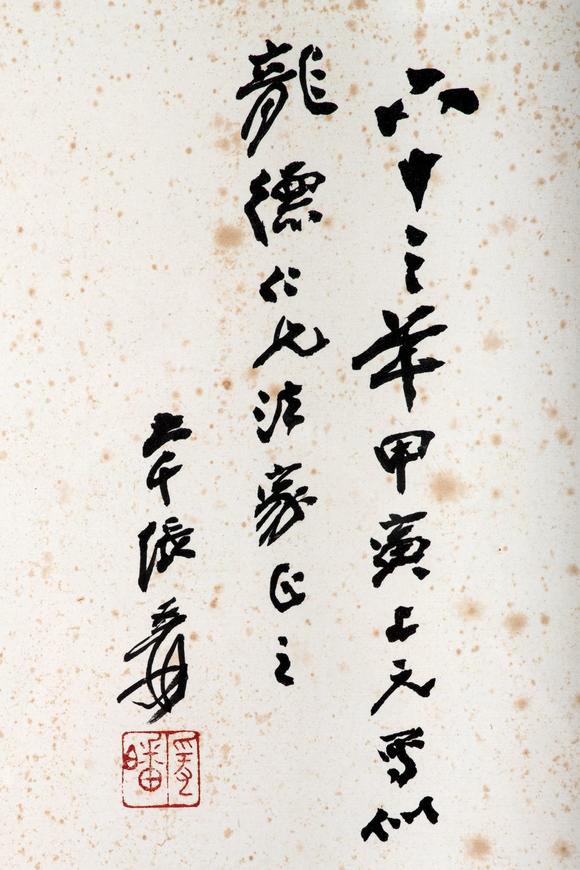 六十三年甲寅上元寫似
龍德仁兄法家正之
大千張爰